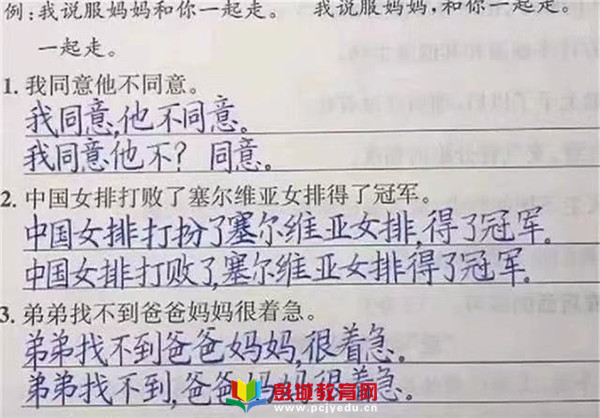 例:我说服妈妈和你一起走。 我说服妈妈,和你一起走。
一起走。
1. 我同意他不同意。
我同意,他不同意。
我同意他不? 同意。
2. 中国女排打败了塞尔维亚女排得了冠军。
中国女排打扮了塞尔维亚女排,得了冠军。
中国女排打败了,塞尔维亚女排得了冠军。
3. 弟弟找不到爸爸妈妈很着急。
弟弟找不到爸爸妈妈,很着急。
弟弟找不到,爸爸妈妈很着急。
彭城教育网
www.pcjyedu.cn